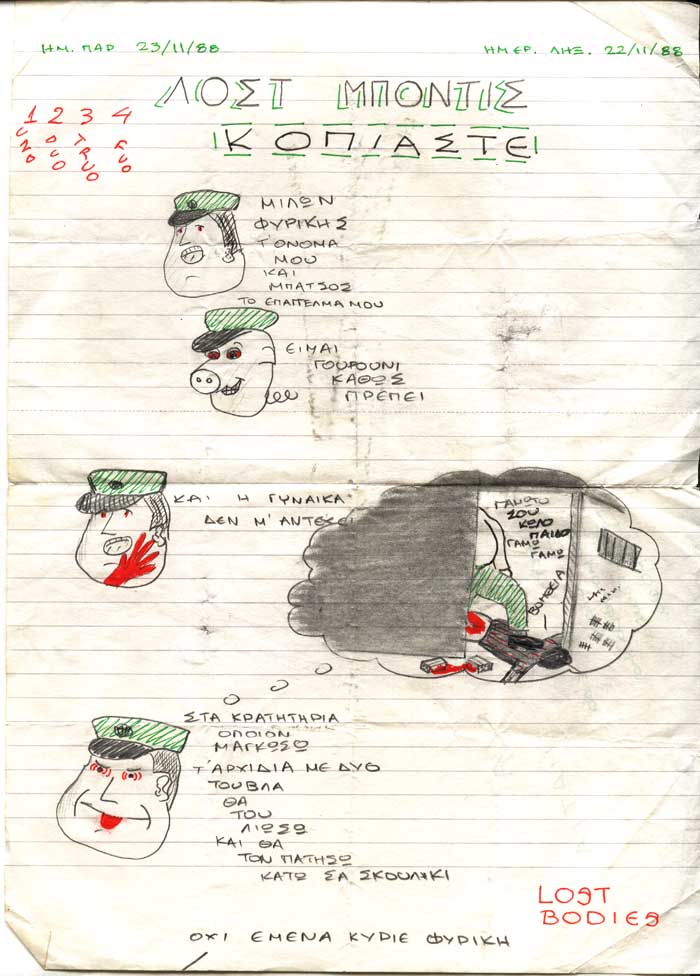 ΗΜ. ΠΑΡ 23/11/88
ΗΜΕΡ. ΛΗΞ. 22/11/88
ΛΟΣΤ ΜΠΟΝΤΙΣ
ΚΟΠΙΑΣΤΕ
1 2 3 4
UNO DUO TRUO FUO
ΜΙΛΩΝ
ΦΥΡΙΚΗΣ
Τ'ΟΝΟΜΑ
ΜΟΥ
ΚΑΙ
ΜΠΑΤΣΟΣ
ΤΟ ΕΠΑΓΓΕΛΜΑ ΜΟΥ
ΕΙΜΑΙ
ΓΟΥΡΟΥΝΙ
ΚΑΘΩΣ
ΠΡΕΠΕΙ
ΚΑΙ Η ΓΥΝΑΙΚΑ
ΔΕΝ Μ'ΑΝΤΕΞΕΙ
ΓΑΜΩΤΟ
ΣΟΥ
ΚΩΛΟ
ΠΑΙΔΟ
ΓΑΜΩ
ΓΑΜΩ
ΒΟΗΘΕΙΑ
ΣΤΑ ΚΡΑΤΗΤΗΡΙΑ
ΟΠΟΙΟΝ
ΜΑΓΚΩΣΩ
Τ'ΑΡΧΙΔΙΑ ΜΕ ΔΥΟ
ΤΟΥΒΛΑ
ΘΑ
ΤΟΥ
ΛΙΩΣΩ
ΚΑΙ ΘΑ
ΤΟΝ ΠΑΤΗΣΩ
ΚΑΤΩ ΣΑ ΣΚΟΥΛΗΚΙ
LOST
BODIES
ΟΧΙ ΕΜΕΝΑ ΚΥΡΙΕ ΦΥΡΙΚΗ